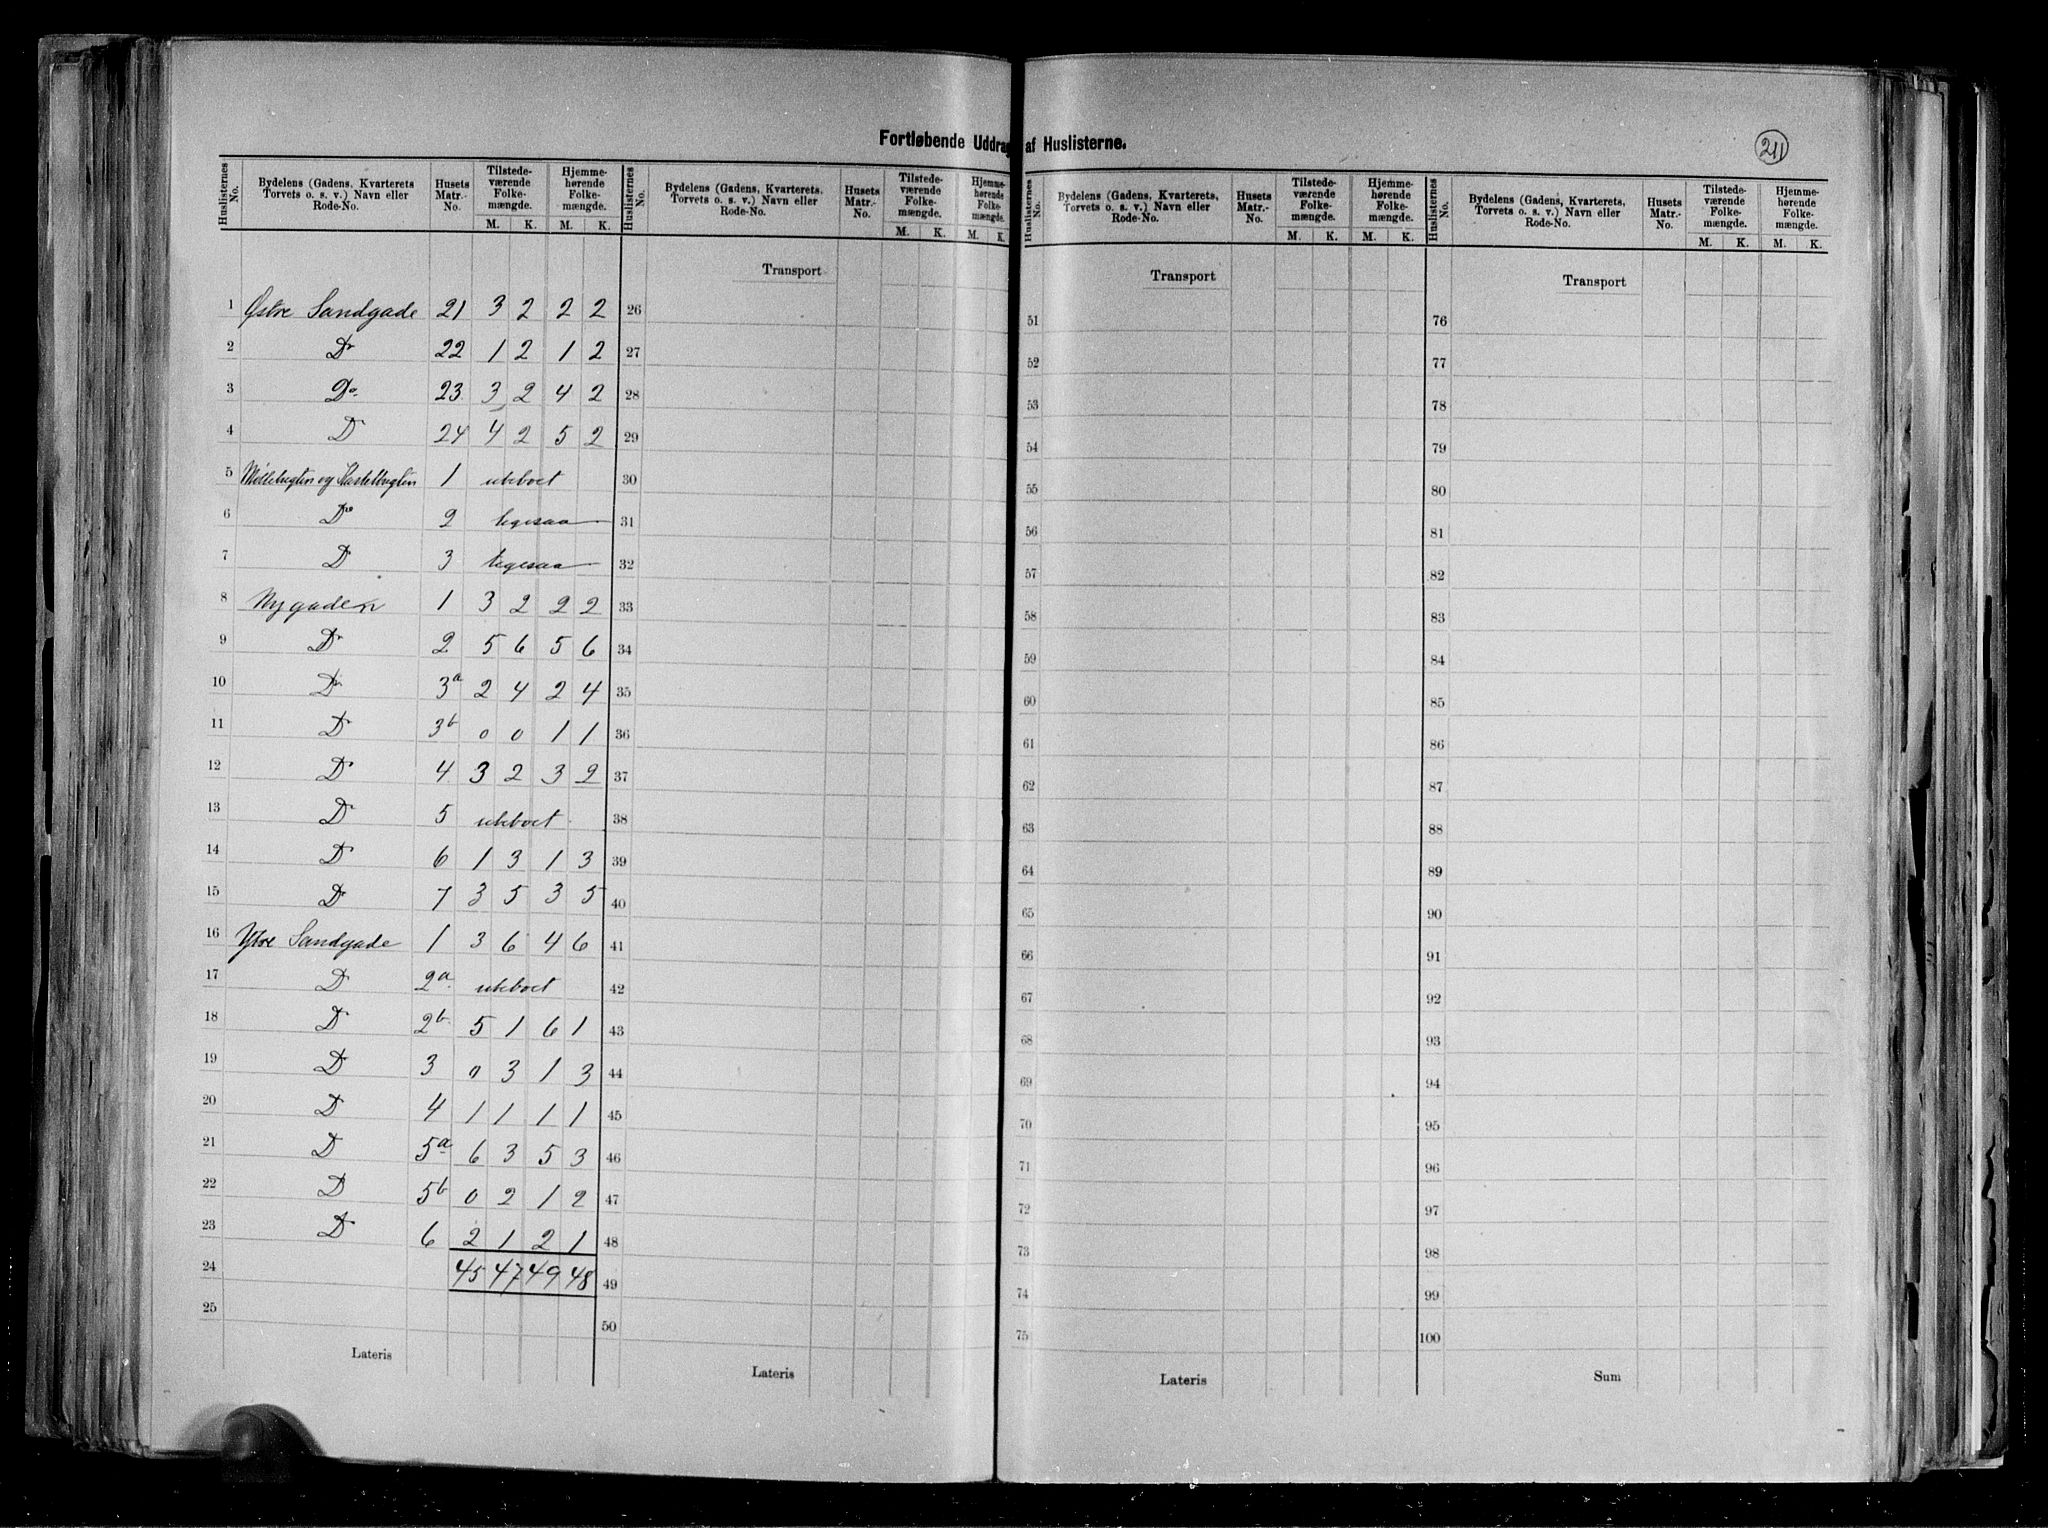 Fortløbende Uddrag af Huslisterne.
211
Huslisternes No. Bydelens (Gadens, Kvarterets Torvets o. s. v.) Navn eller Rode-No. Husets Matr.-No. Tilstede-værende Folke-mængde. M. K. Hjemme-hørende Folke-mængde. M. K.
Huslisternes No. Bydelens (Gadens, Kvarterets, Torvets o. s. v.) Navn eller Rode-No. Husets Matr.-No. Tilstede-værende Folke-mængde. M. K. Hjemme-hørende Folke-mængde. M. K.
Huslisternes No. Bydelens (Gadens, Kvarterets, Torvets o. s. v.) Navn eller Rode-No. Husets Matr.-No. Tilstede-værende Folke-mængde. M. K. Hjemme-hørende Folke-mængde. M. K.
Huslisternes No. Bydelens (Gadens, Kvarterets, Torvets o. s. v.) Navn eller Rode-No. Husets Matr.-No. Tilstede-værende Folke-mængde. M. K. Hjemme-hørende Folke-mængde. M. K.
Transport Transport Transport
1 Østre Sandgade 21 3 2 2 2 26 51 76
2 Do 22 1 2 1 2 27 52 77
3 Do 23 3 2 4 2 28 53 78
4 D 24 4 2 5 2 29 54 79
5 Møllebugten og Kastelbugten 1 ubeboet 30 55 80
6 Do 2 ligesaa 31 56 81
7 D 3 ligesaa 32 57 82
8 Nygaden 1 3 2 2 2 33 58 83
9 Do 2 5 6 5 6 34 59 84
10 Do 3a 2 4 2 4 35 60 85
11 D 3b 0 0 1 1 36 61 86
12 D 4 3 2 3 2 37 62 87
13 D 5 ubeboet 38 63 88
14 D 6 1 3 1 3 39 64 89
15 D 7 3 5 3 5 40 65 90
16 Ytre Sandgade 1 3 6 4 6 41 66 91
17 D 2a ubeboet 42 67 92
18 D 2b 5 1 6 1 43 68 93
19 D 3 0 3 1 3 44 69 94
20 D 4 1 1 1 1 45 70 95
21 D 5a 6 3 5 3 46 71 96
22 D 5b 0 2 1 2 47 72 97
23 D 6 2 1 2 1 48 73 98
24 45 47 49 48 49 74 99
25 50 75 100
Lateris Lateris Lateris Sum